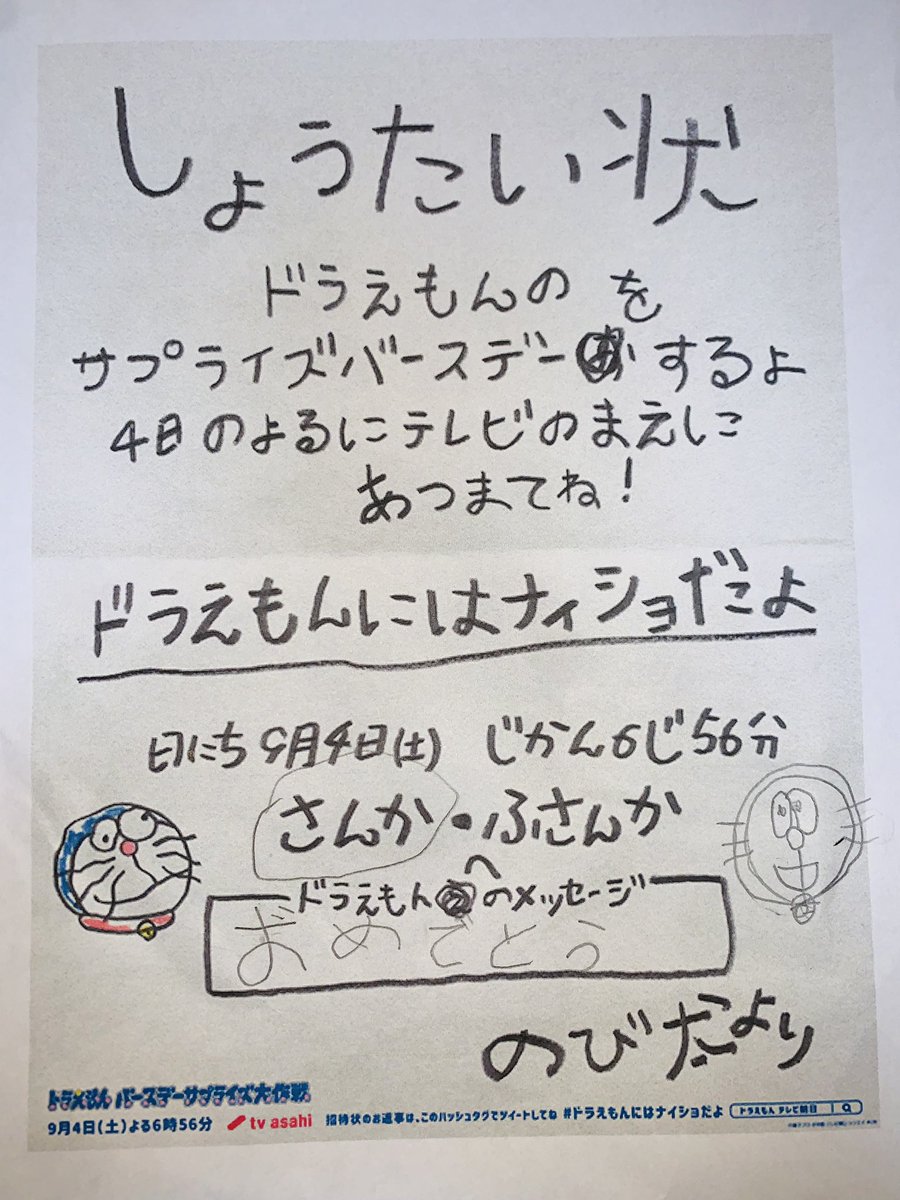 しょうたい状
ドラえもんの を
サプライズバースデー するよ
4日のよるにテレビのまえに
あつまてね!
ドラえもんにはナイショだよ
日にち 9月4日(土) じかん6じ56分
さんか・ふさんか
ドラえもんへのメッセージ
おめでとう
のびだより
ドラえもん バースデーサプライズ大作戦
9月4日(土)よる6時56分 tv asahi 招待状のお返事は、このハッシュタグでツイートしてね #ドラえもんにはナイショだよ ドラえもん テレビ朝日